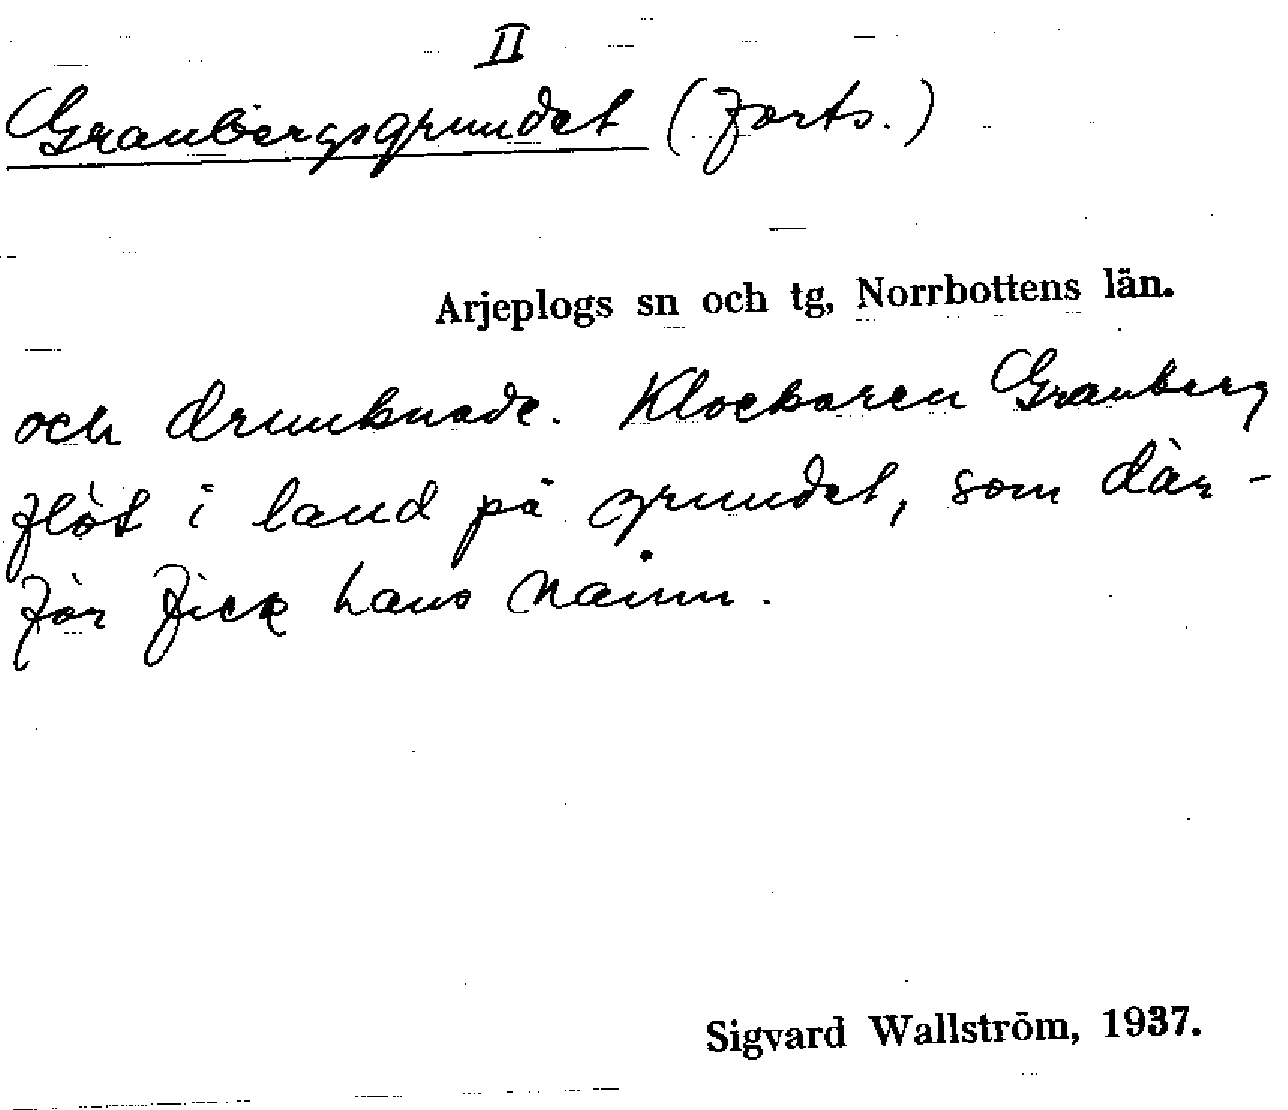 II
Granbergsgrundet (forts.)
Arjeplogs sn och tg, Norrbottens län.
och drunknade. Klockaren Granberg
flöt i land på grundet, som där-
för fick hans namn.
Sigvard Wallström, 1937.